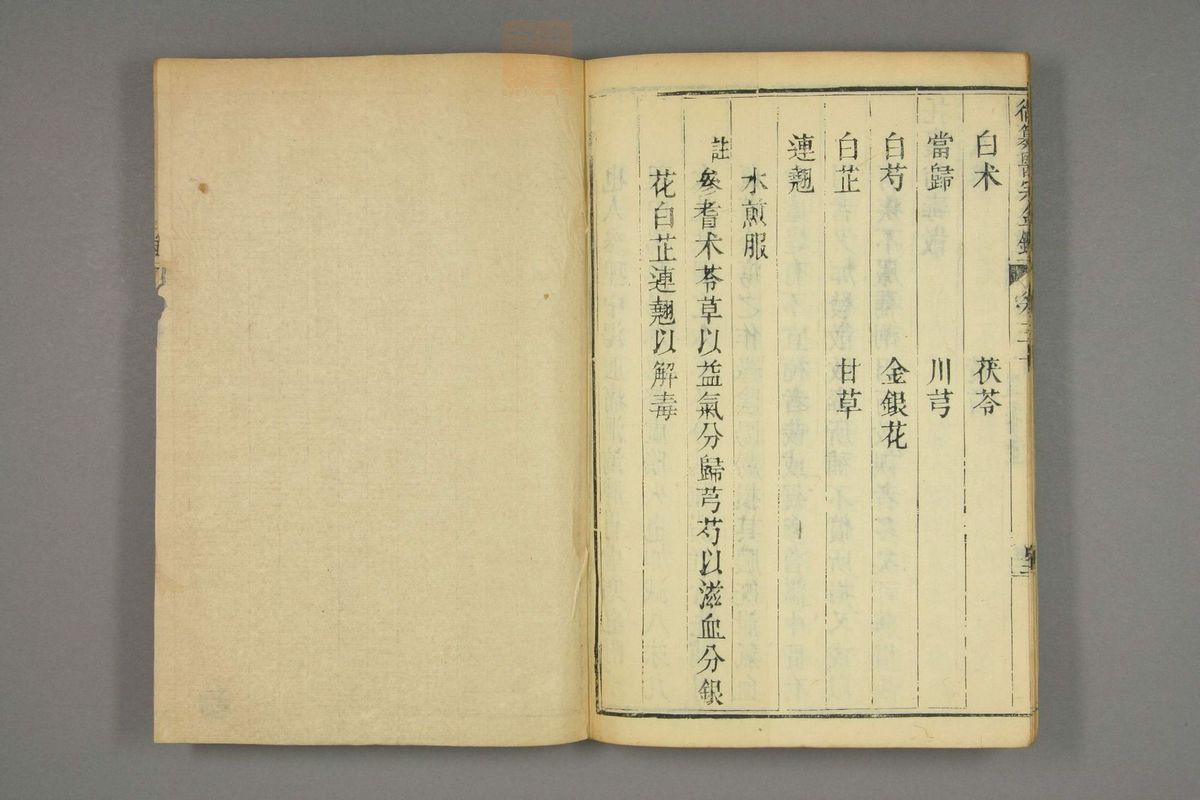 御纂醫宗金鑑 卷三十
白术 茯苓
當歸 川芎
白芍 金銀花
白芷 甘草
連翹
水煎服
註 參耆术苓草以益氣分歸芎芍以滋血分銀
花白芷連翹以解毒